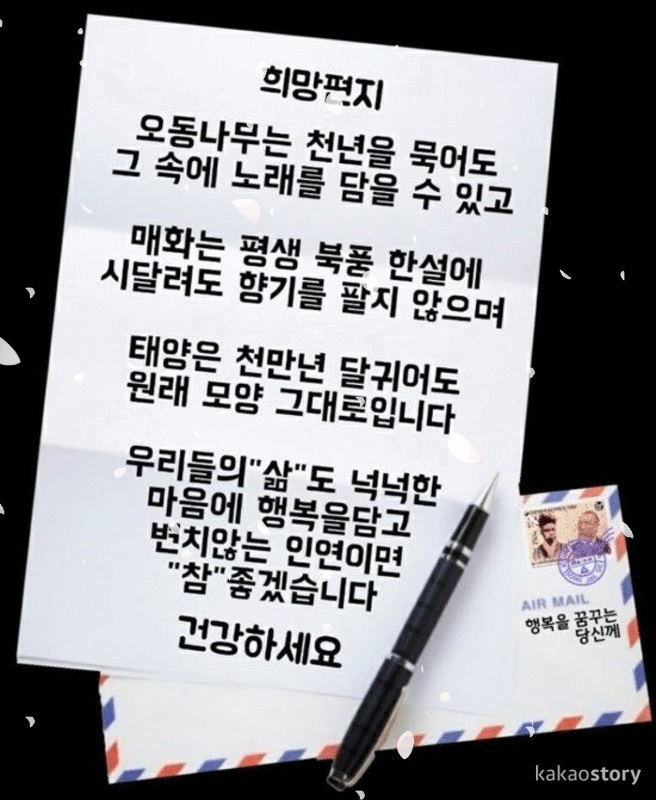 희망편지
오동나무는 천년을 묵어도
그 속에 노래를 담을 수 있고
매화는 평생 북풍 한설에
시달려도 향기를 팔지 않으며
태양은 천만년 달궈어도
원래 모양 그대로입니다
우리들의"삶"도 넉넉한
마음에 행복을담고
변치않는 인연이면
"참"좋겠습니다
건강하세요
AIR MAIL
행복을 꿈꾸는
당신께
kakaostory